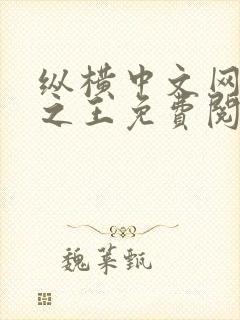 纵横中文网
之王免费阅
魏葉甄